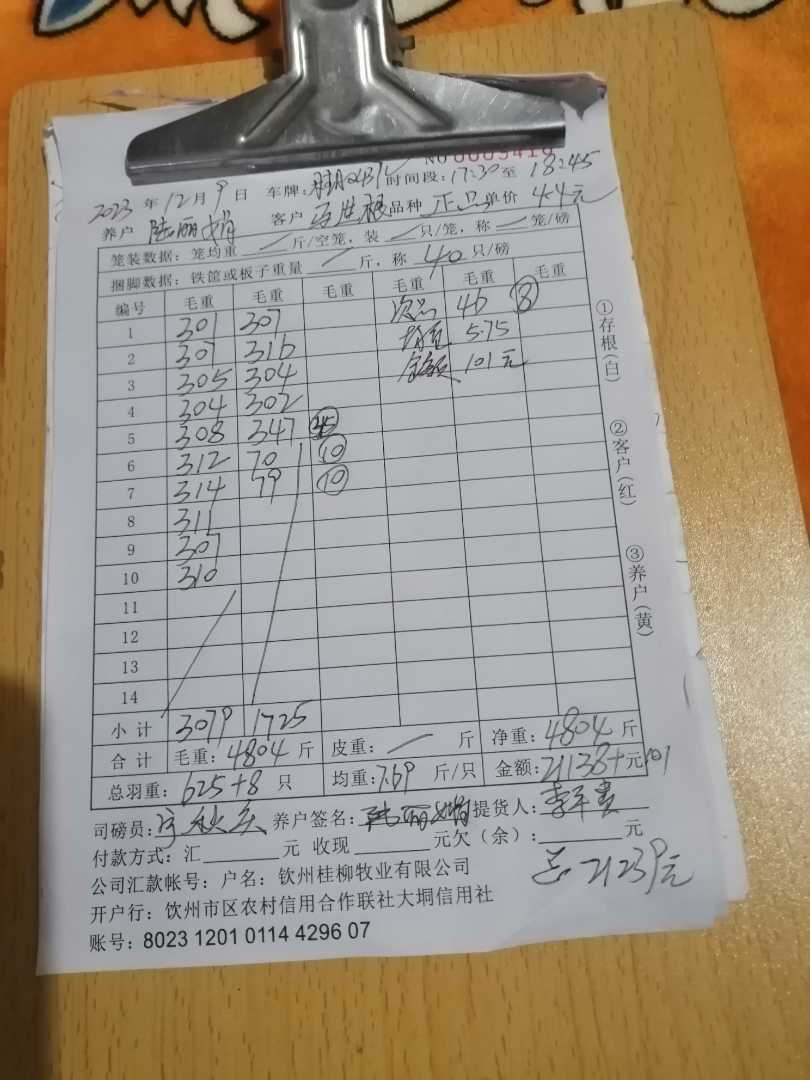 NO 0005416
2023 年 12 月 9 日 车牌: 时间段: 17:30 至 18:45
养户 陆丽娟 客户 品种 正品 单价 4.4 元
笼装数据: 笼均重 / 斤/空笼, 装 / 只/笼, 称 / 笼/磅
捆脚数据: 铁笼或板子重量 / 斤, 称 40 只/磅
编号 毛重 毛重 毛重 毛重 毛重 毛重
1 301 307 次品 46 8
2 307 316 均重 5.75
3 305 304 金额 101元
4 304 302
5 308 347 45
6 312 70 10
7 314 79 10
8 311
9 307
10 310
11
12
13
14
小计 3079 1725
合计 毛重: 4804 斤 皮重: / 斤 净重: 4804 斤
总羽重: 625+8 只 均重: 7.69 斤/只 金额: 21138+ 元 101
司磅员: 养户签名: 陆丽娟 提货人:
付款方式: 汇 元 收现 元欠(余): 元
总21239元
公司汇款帐号: 户名: 钦州桂柳牧业有限公司
开户行: 钦州市区农村信用合作联社大垌信用社
账号: 8023 1201 0114 4296 07
①存根(白)
②客户(红)
③养户(黄)